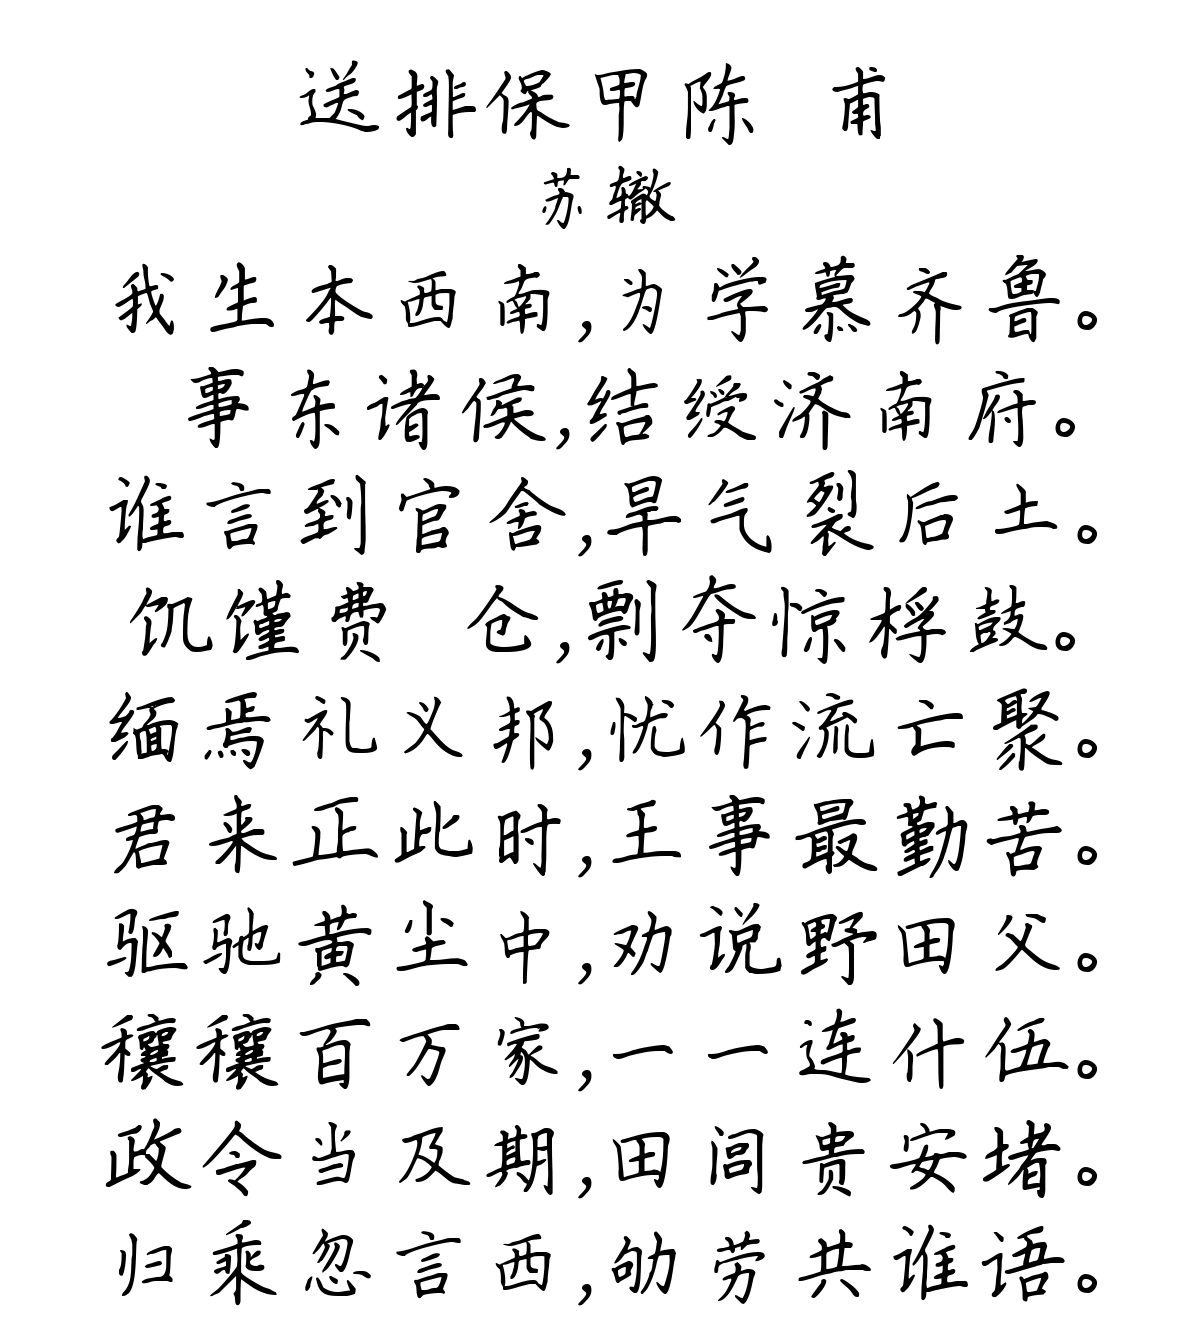 送排保甲陈 甫
苏辙
我生本西南,为学慕齐鲁。
事东诸侯,结绶济南府。
谁言到官舍,旱气裂后土。
饥馑费 仓,剽夺惊桴鼓。
缅焉礼义邦,忧作流亡聚。
君来正此时,王事最勤苦。
驱驰黄尘中,劝说野田父。
穰穰百万家,一一连什伍。
政令当及期,田闾贵安堵。
归乘忽言西,劬劳共谁语。